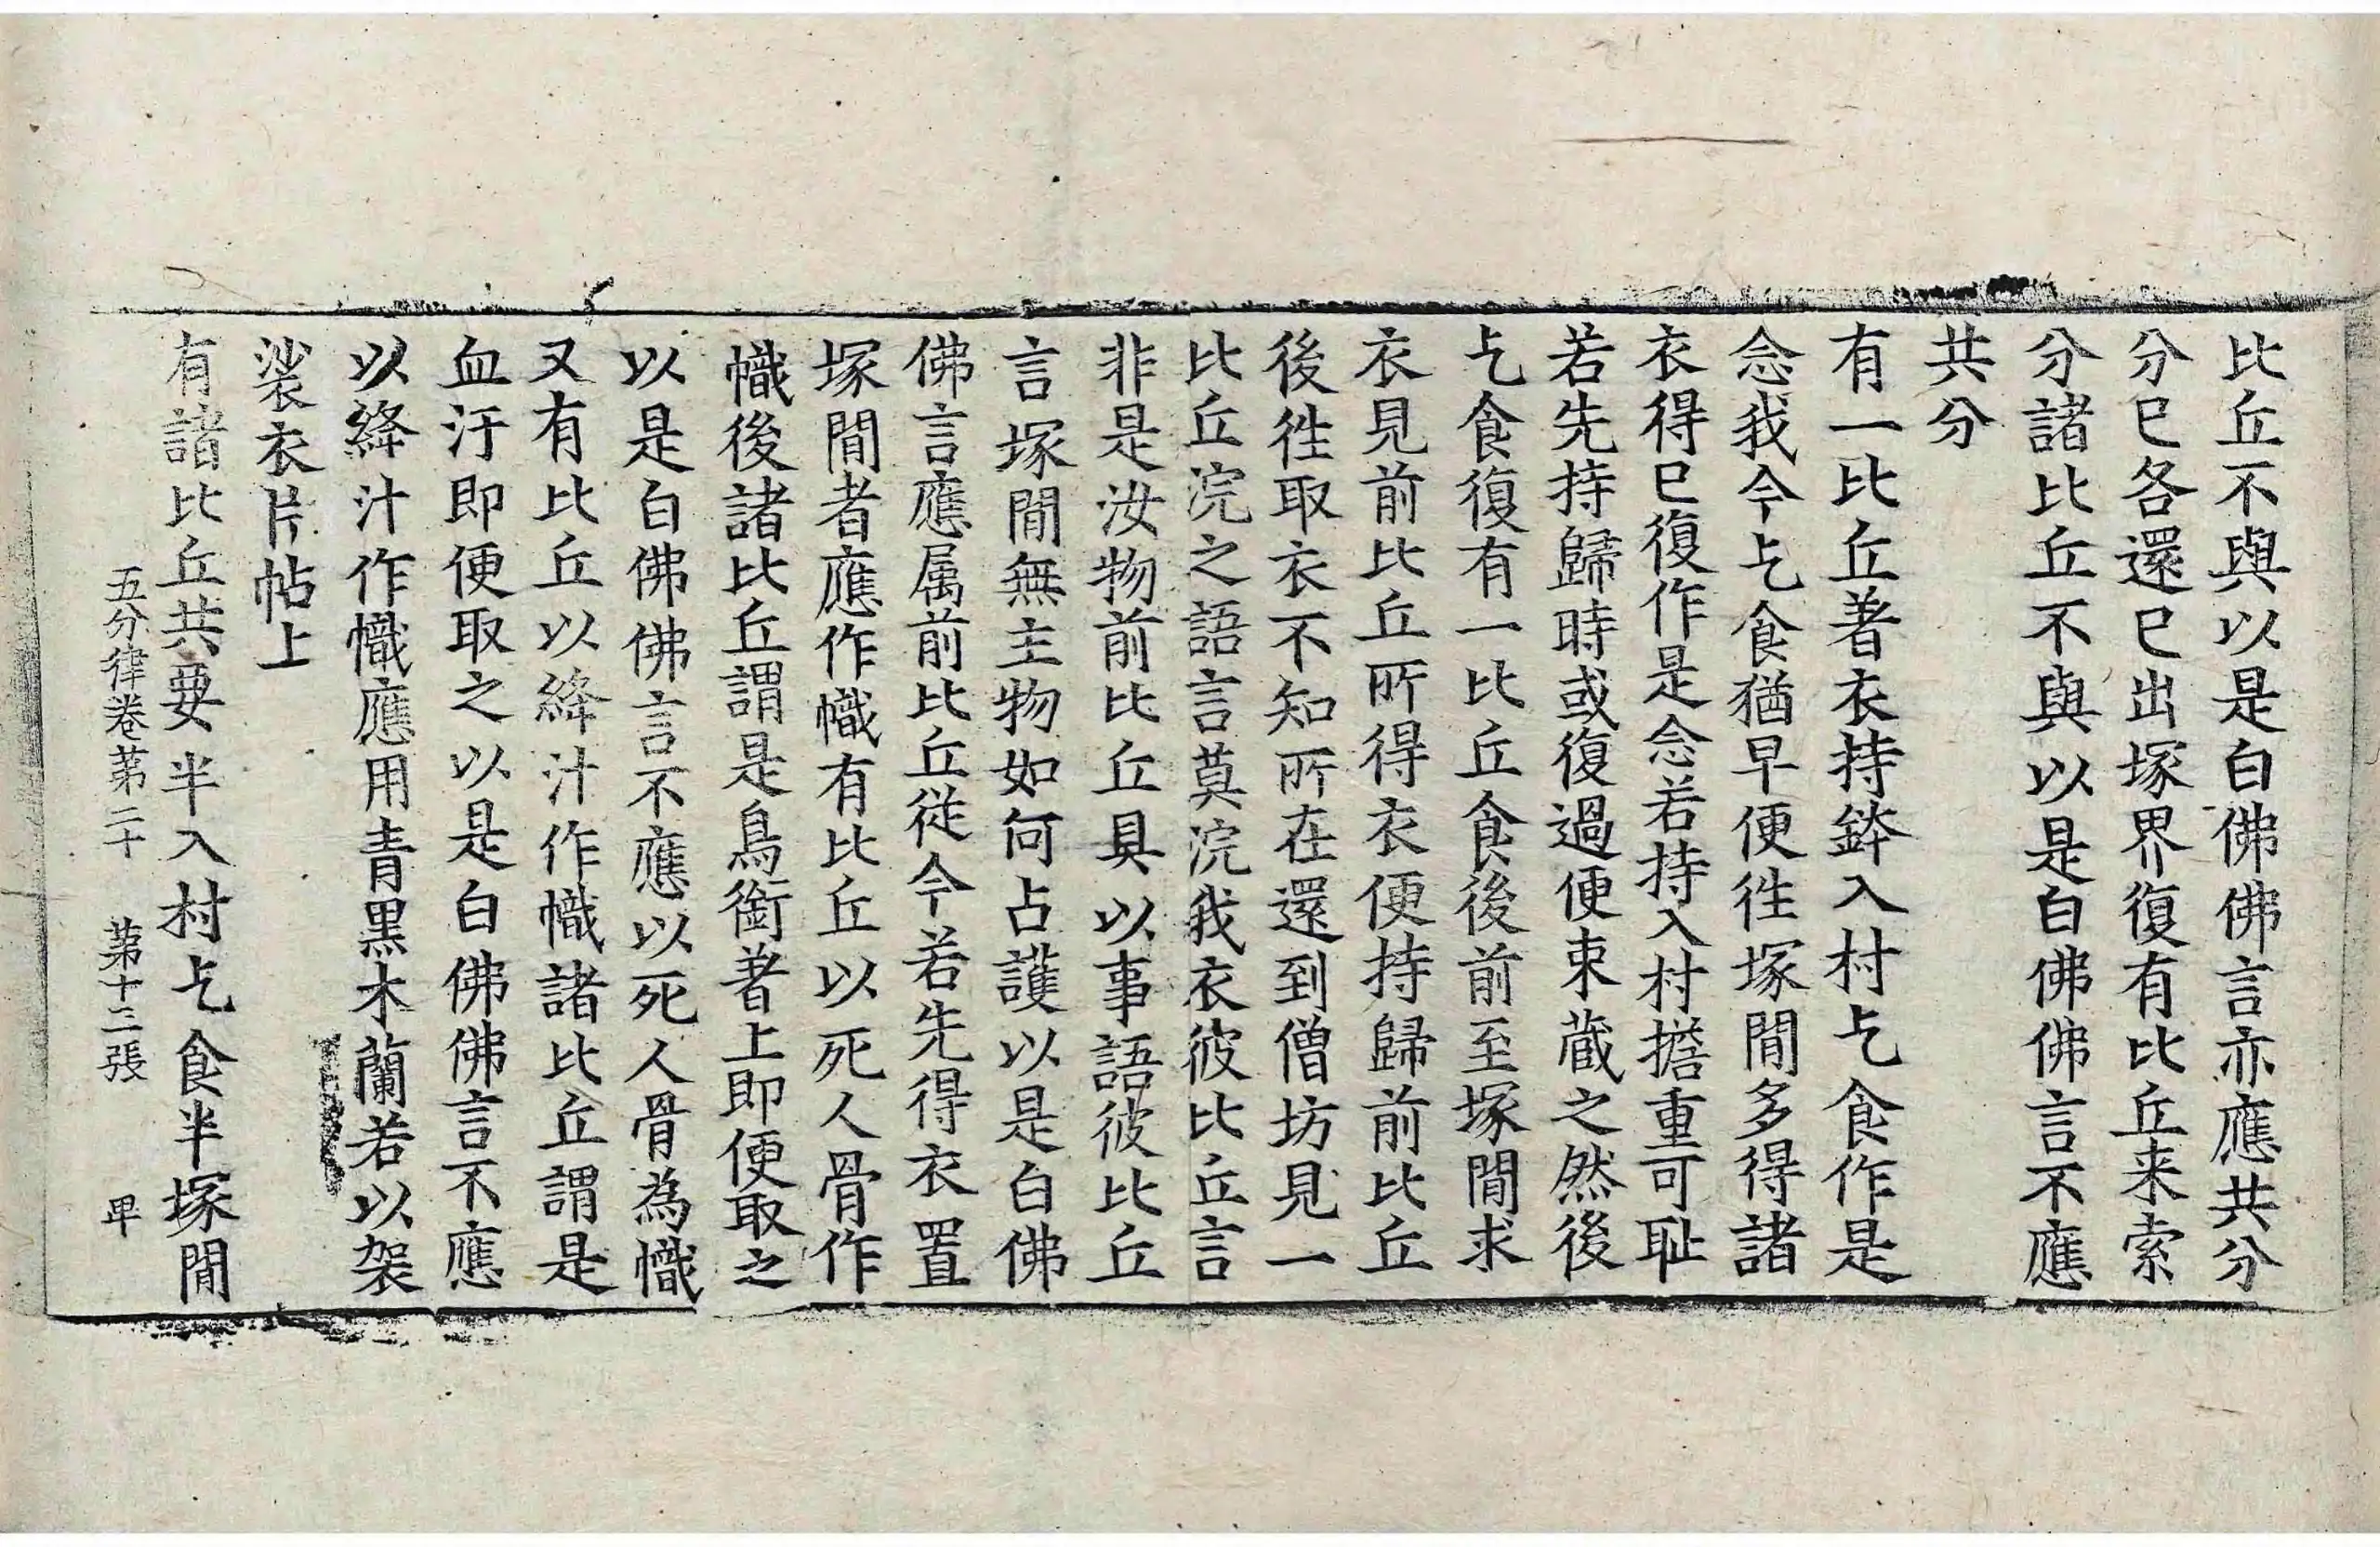 比丘不與以是白佛佛言亦應共分
分已各還已出塚界復有比丘来索
分諸比丘不與以是白佛佛言不應
共分
有一比丘著衣持鉢入村乞食作是
念我今乞食猶早便徃塚間多得諸
衣得已復作是念若持入村擔重可耻
若先持歸時或復過便束蔵之然後
乞食復有一比丘食後前至塚間求
衣見前比丘所得衣便持歸前比丘
後徃取衣不知所在還到僧坊見一
比丘浣之語言莫浣我衣彼比丘言
非是汝物前比丘具以事語彼比丘
言塚間無主物如何占護以是白佛
佛言應属前比丘従今若先得衣置
塚間者應作幟有比丘以死人骨作
幟後諸比丘謂是鳥銜著上即便取之
以是白佛佛言不應以死人骨為幟
又有比丘以絳汁作幟諸比丘謂是
血汙即便取之以是白佛佛言不應
以絳汁作幟應用青黑木蘭若以袈
裟衣片帖上
有諸比丘共要半入村乞食半塚間
五分律卷第二十 第十三張 卑